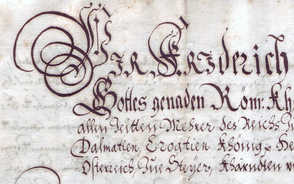 Wir Friderich
Gottes genaden Röm: Kh
allen Zeitten Mehrer des Reichs
Dalmatien Croatien Khönig
Österreich Zue Steyer, Khärndten